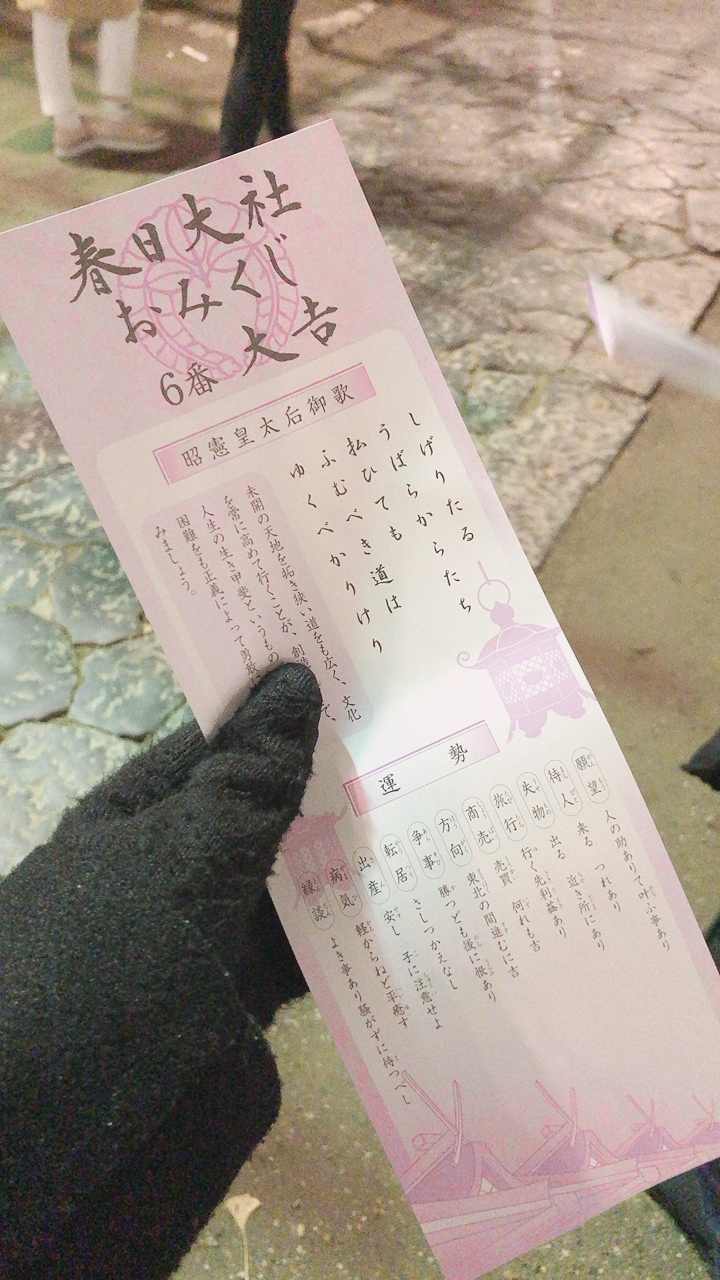 春日大社
おみくじ
6番 大吉
昭憲皇太后御歌
しげりたる
うばらからたち
払ひても
ふむべき道は
ゆくべかりけり
未開の天地を拓き狭い道をも広く、文化
を常に高めて行くことが、創造
人生の生き甲斐というもの て、
困難をも正義によって勇敢
みましょう。
運勢
願望 人の助ありて叶ふ事あり
待人 来る つれあり
失物 出る 近き所にあり
旅行 行く先利益あり
商売 売買 何れも吉
方向 東北の間進むに吉
争事 勝つとも後に恨あり
転居 さしつかえなし
出産 安し 子に注意せよ
病気 軽からねど平癒す
縁談 よき事あり騒がずに待つべし